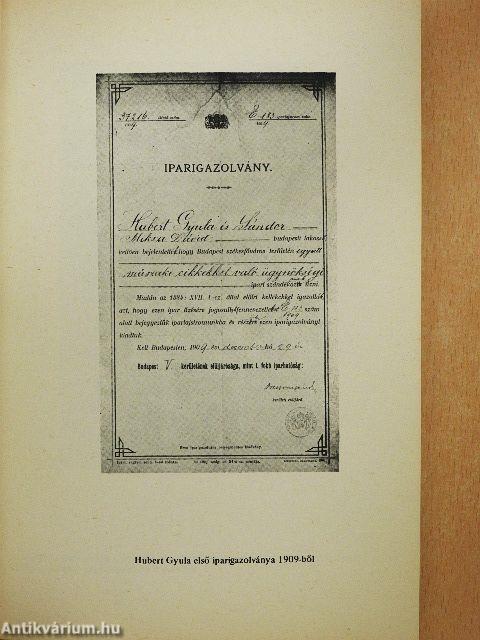 37216 általi szám E 183 iparlajstromi szám
IPARIGAZOLVÁNY.
Hubert Gyula és Sándor
Miksa Dávid budapesti lakosok
bejelentett hogy Budapest székesfőváros területén együtt
műszaki cikkekkel való ügynökségi
ipart szándékoznak űzni.
Miután az 1884: XVII. t.-cz. által előírt kellékekkel igazolták
azt, hogy ezen ipar űzésére
alatt bejegyeztük iparlajstromunkba és részére ezen iparigazolványt
kiadtuk.
Kelt Budapesten, 1909. én december hó 29 én
Budapest V. kerületének elüljárósága, mint I. fokú iparhatóság:
kerületi elüljáró
Hubert Gyula első iparigazolványa 1909-ből
Antikvárium.hu